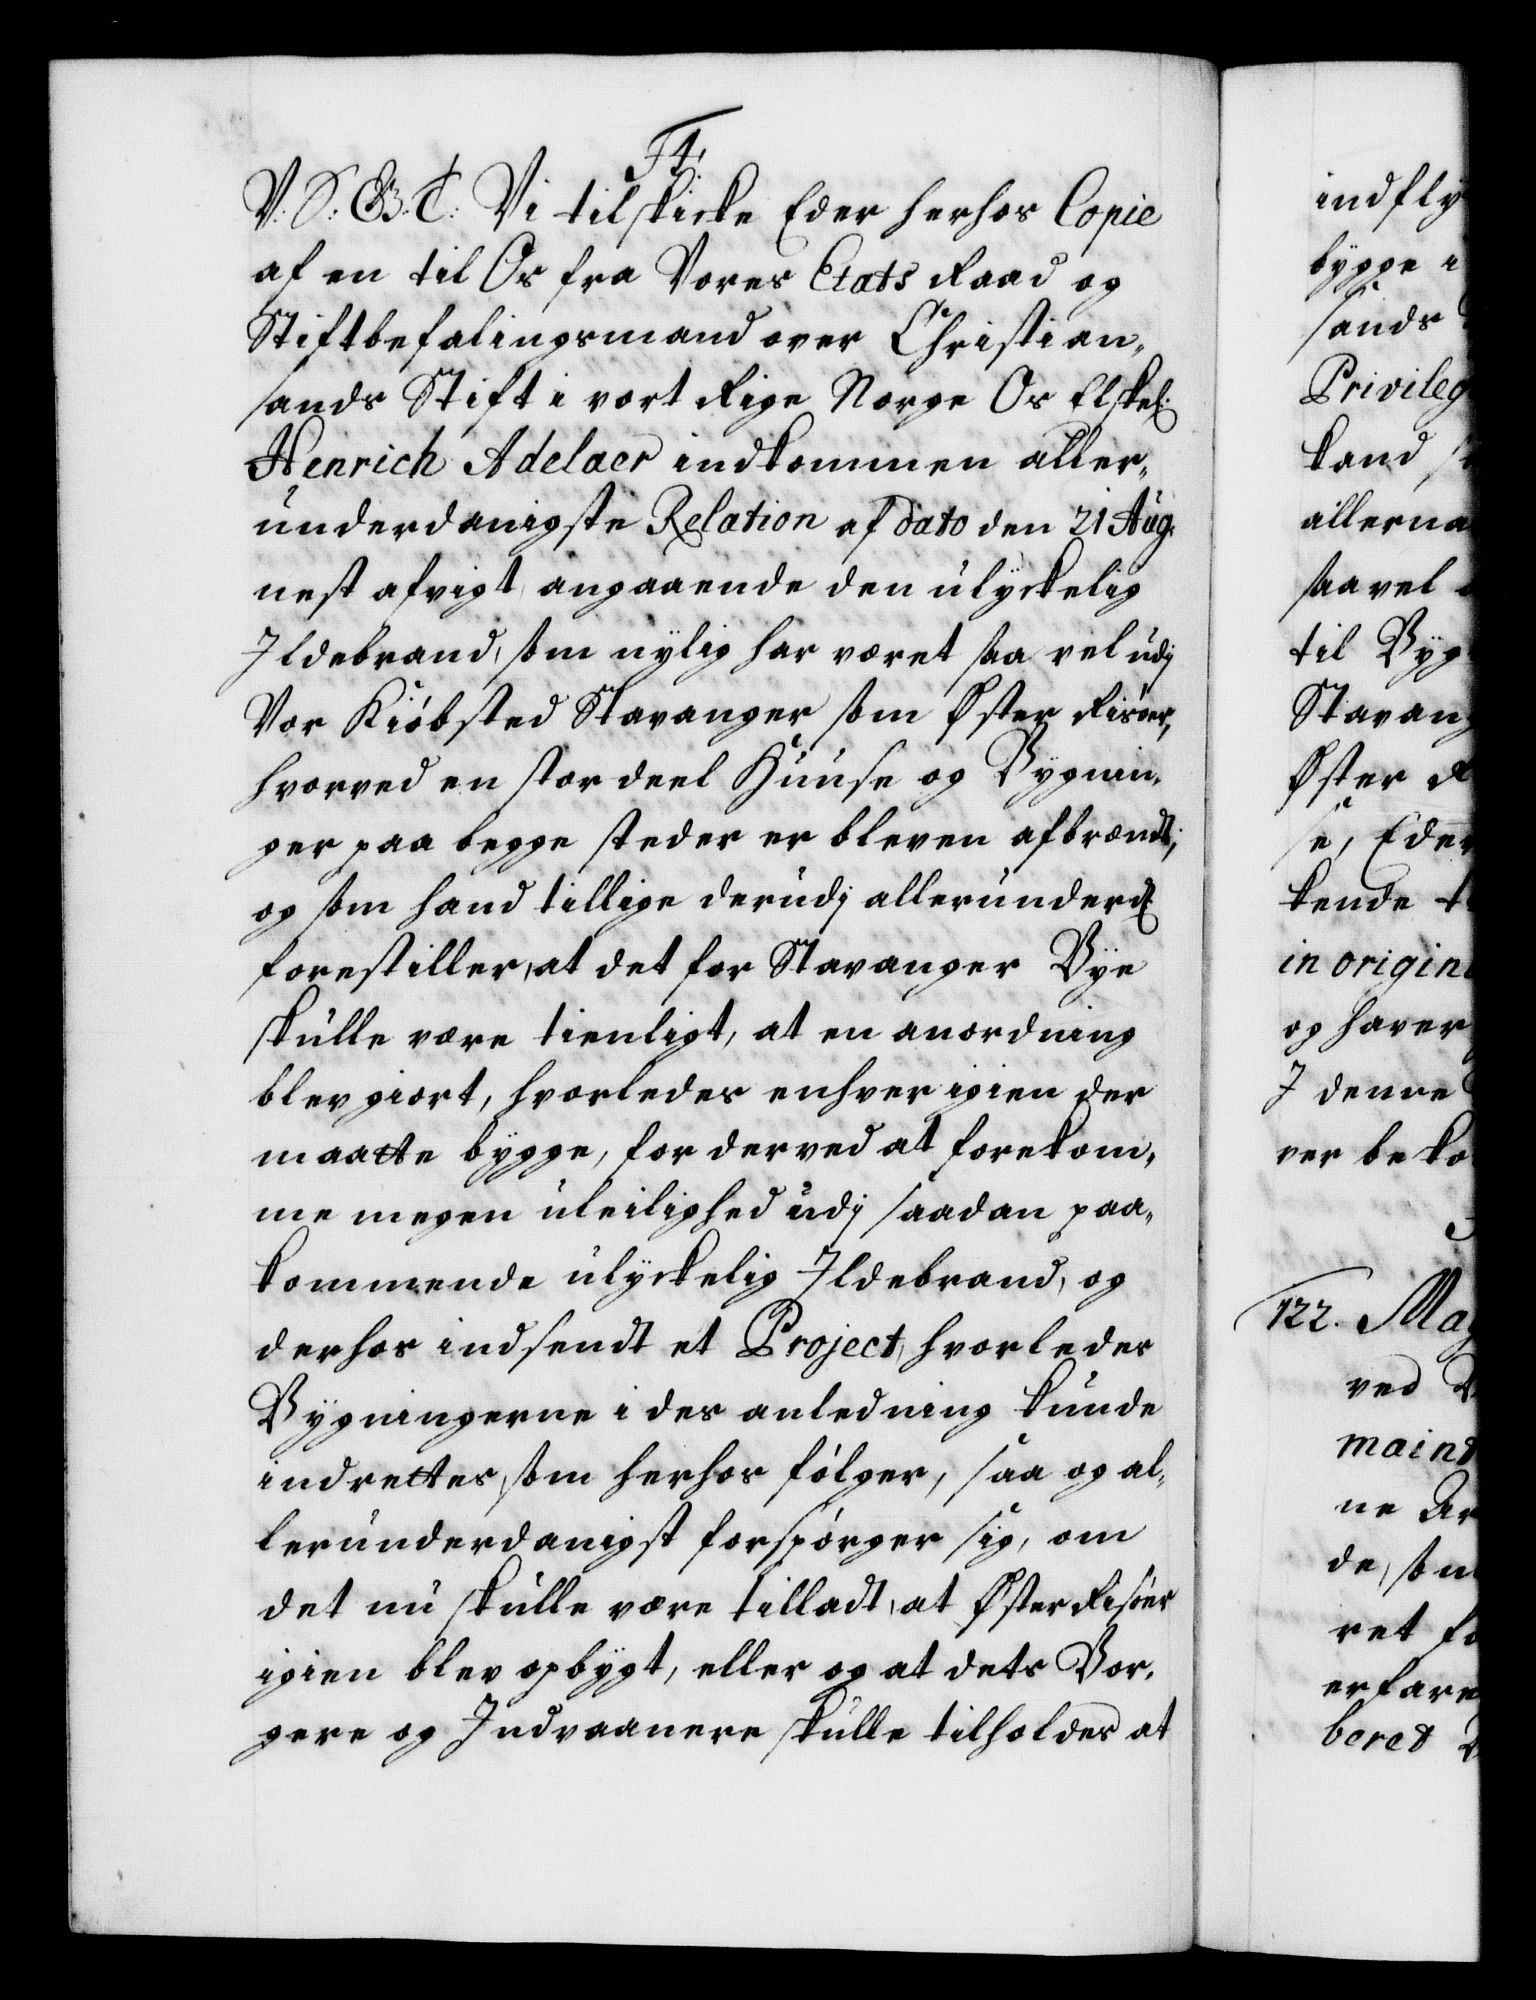 F4.
V. S. G. T. Vi tilskicke Eder herhos Copie
af en til Os fra Vores Etats Raad og
Stiftbefalingsmand over Christian„
sands Stift i vort Rige Norge Os Elskel.
Henrich Adelaer indkommen aller„
underdanigste Relation af dato den 21 Aug.
nest afvigt, angaaende den ulyckelig
Ildebrand, som nylig har været saa vel udj
Vor Kiöbsted Stavanger som Øster Risöer,
hvorved en stor deel Huuse og Bygnin„
ger paa begge steder er bleven afbrændt;
og som hand tillige derudj allerunderd.
forestiller, at det for Stavanger Bye
skulle være tienligt, at en anordning
blev giort, hvorledes enhver igien der
maatte bygge, for derved at forekom„
me megen uleilighed udj saadan paa„
kommende ulyckelig Ildebrand, og
derhos indsendt et Project, hvorledes
Bygningerne i des anledning kunde
indrettes, som herhos fölger, saa og al„
lerunderdanigst forspörger sig, om
det nu skulle være tilladt, at Øster Risöer
igien blev opbygt, eller og at dets Bor„
gere og Indvaanere skulle tilholdes at
indfly
bygge i
sands
Privileg
kand
allerna
saavel
til Byg
Stavang
Øster R
se, Eder
kende t
in origin
og haver
I denne
ver beko
122. Mag
ved
maind
ne Ar
de, som
ret fo
erfare
beret